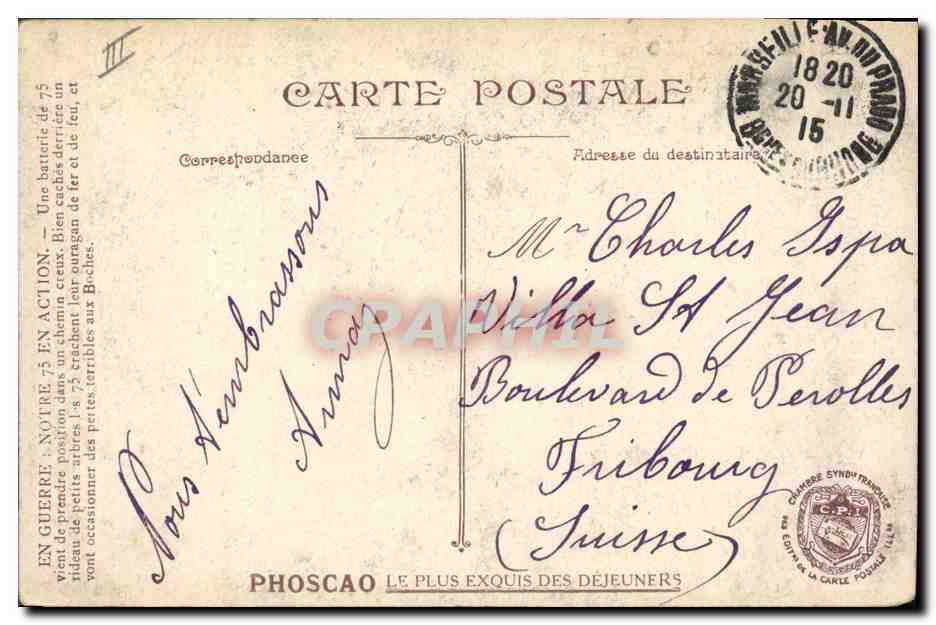 III
CARTE POSTALE
MARSEILLE AV. DU PRADO
18 20
20 -11
15
BCHES DU RHONE
Correspondance
Adresse du destinataire
Nous t'embrassons
Mr Charles Ispa
Villa St Jean
Boulevard de Perolles
Fribourg
(Suisse)
EN GUERRE : NOTRE 75 EN ACTION. — Une batterie de 75
vient de prendre position dans un chemin creux. Bien cachés derrière un
rideau de petits arbres l·s 75 crachent leur ouragan de fer et de feu, et
vont occasionner des pertes terribles aux Boches.
PHOSCAO LE PLUS EXQUIS DES DÉJEUNERS
CHAMBRE SYNDLE FRANÇAISE
C.P.I
DES EDITRS DE LA CARTE POSTALE ILLÉE
CPAPHIL.COM